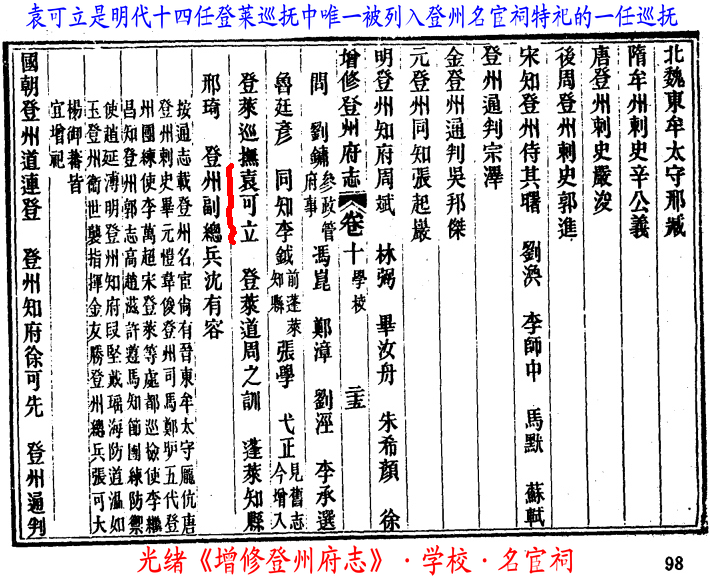 袁可立是明代十四任登莱巡抚中唯一被列入登州名宦祠特祀的一任巡抚
北魏東牟太守邢臧
隋牟州刺史辛公義
唐登州刺史嚴浚
後周登州刺史郭進
宋知登州侍其曙 劉渙 李師中 馬默 蘇軾
登州通判宗澤
金登州通判吳邦傑
元登州同知張起巖
明登州知府周斌 林弼 畢汝舟 朱希顔 徐
增修登州府志 卷十 學校 二五
問 劉鏞參政管府事 馮崑 鄭漳 劉涇 李承選
魯廷彦 同知李鉞前蓬萊知縣 張學 弋正見舊志今增入
登萊巡撫袁可立 登萊道周之訓 蓬萊知縣
邢琦 登州副總兵沈有容
按通志載登州名宦尚有晉東牟太守龎伉唐
登州刺史畢元愷韋俊登州司馬鄭馿五代登
州團練使李萬超宋登萊等處都巡檢使李繼
昌知登州郭志高趙滋許遵馬知節團練防禦
使趙延溥明登州知府段堅戴瑶海防道溫如
玉登州衞世襲指揮金友勝登州總兵張可大
楊御蕃皆
宜增祀
國朝登州道連登 登州知府徐可先 登州通判
光绪《增修登州府志》·学校·名宦祠
98